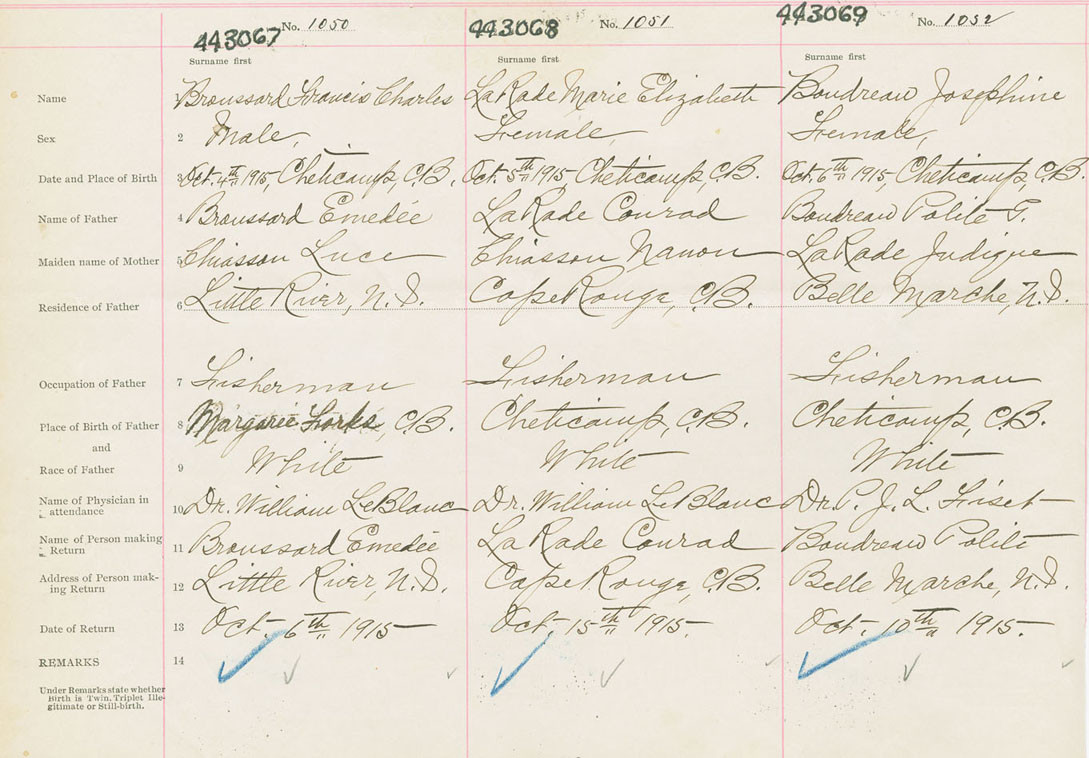 443067 No. 1050 443068 No. 1051 443069 No. 1052
Surname first Surname first Surname first
Name 1 Broussard Francis Charles LaRade Marie Elizabeth Boudreau Josephine
Sex 2 Male, Female, Female,
Date and Place of Birth 3 Oct. 4th 1915, Cheticamp, C.B. Oct. 5th 1915 Cheticamp, C.B. Oct. 6th 1915, Cheticamp, C.B.
Name of Father 4 Broussard Emedée LaRade Conrad Boudreau Polite T.
Maiden name of Mother 5 Chiasson Luce Chiasson Nanon LaRade Judique
Residence of Father 6 Little River, N.S. Cape Rouge, C.B. Belle Marche, N.S.
Occupation of Father 7 Fisherman Fisherman Fisherman
Place of Birth of Father 8 Margaree Forks, C.B. Cheticamp, C.B. Cheticamp, C.B.
and
Race of Father 9 White White White
Name of Physician in
attendance 10 Dr. William LeBlanc Dr. William LeBlanc Dr. P. J. L. Fiset
Name of Person making
Return 11 Broussard Emedée LaRade Conrad Boudreau Polite
Address of Person mak-
ing Return 12 Little River, N.S. Cape Rouge, C.B. Belle Marche, N.S.
Date of Return 13 Oct. 6th 1915 Oct. 15th 1915. Oct. 10th 1915.
REMARKS 14
Under Remarks state whether
Birth is Twin, Triplet Ille-
gitimate or Still-birth.